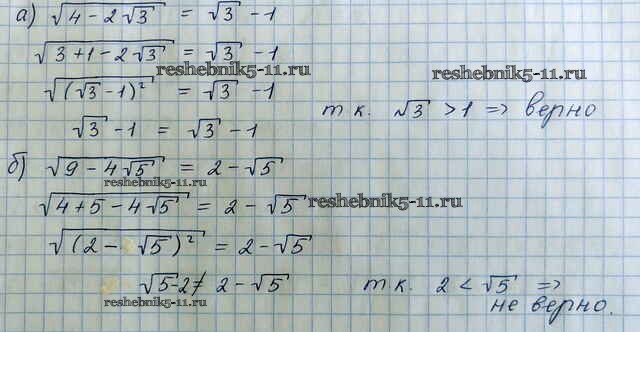 а) √(4 - 2√3) = √3 - 1
√(3 + 1 - 2√3) = √3 - 1
reshebnik5-11.ru
reshebnik5-11.ru
√((√3 - 1)²) = √3 - 1
√3 - 1 = √3 - 1 т к. √3 > 1 => верно
б) √(9 - 4√5) = 2 - √5
reshebnik5-11.ru
√(4 + 5 - 4√5) = 2 - √5
reshebnik5-11.ru
√((2 - √5)²) = 2 - √5
√5 - 2 ≠ 2 - √5 т.к. 2 < √5 =>
reshebnik5-11.ru
не верно.